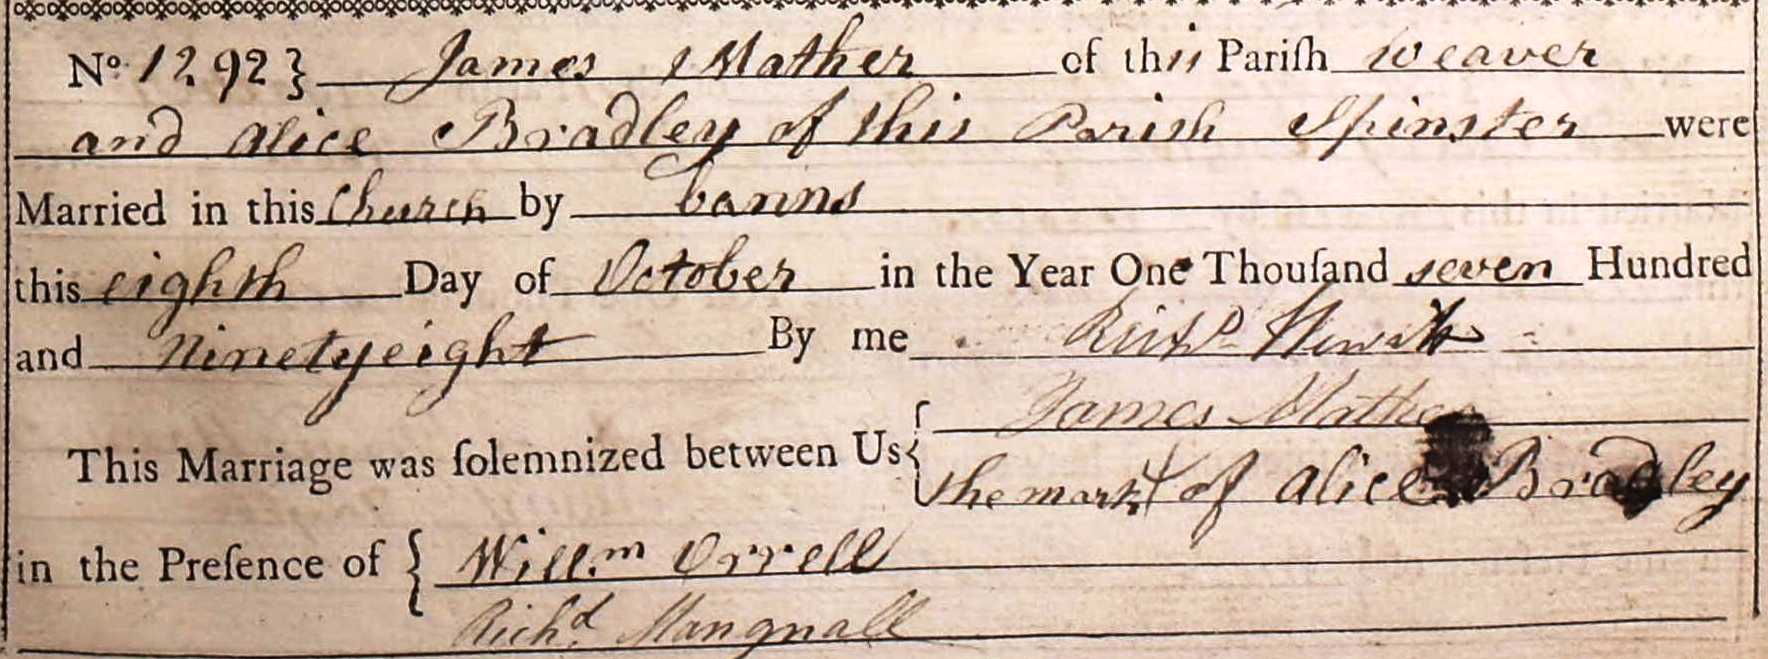 No. 1292} James Mather of this Pariſh weaver
and Alice Bradley of this Parish Spinster were
Married in this Church by banns
this eighth Day of October in the Year One Thouſand seven Hundred
and Ninetyeight By me
James Mather
This Marriage was ſolemnized between Us {
the mark + of Alice Bradley
in the Preſence of { Willm Orrell
Richd. Mangnall